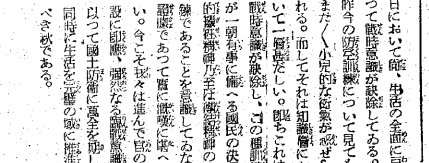 日において尙、生活の全面に亘
つて戰時意識が缺除してゐる
昨今の防空訓練について見て
まだ〱小兒的な術氣がぜ
れる。而してそれは知識層に
いて一層甚だしい。卽ちこれ
戰時意識が缺除し、この種訓
が一朝有事に備へる國民の決
的犧牲精神乃至は傳統精神の
練であることを意識してゐな
證據であつて實に慨嘆に堪へ
い。今こそ我々は進んで官の
設に卽應し、强烈なる臨戰意識
以つて國土防衞に萬全を期し
同時に生活を完璧の域に推進
べき秋である。